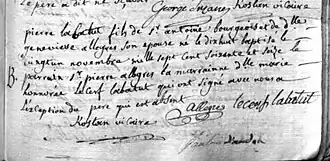 le père a dit ne sçavoir
George Suzanne, Rostan vicaire
pierre labatut fils de sr antoine bourgeois et de dlle
genevieve allegres son épouse né le dixhuit baptisé le
vingtun novembre mille sept cent soixante et seize le
B. parrain sr pierre allegres la marraine dlle marie
honnorée lecerf labatut qui ont signé avec nous a
l'exception du père qui est absent
allegres lecerf labatut
Rostan vicaire